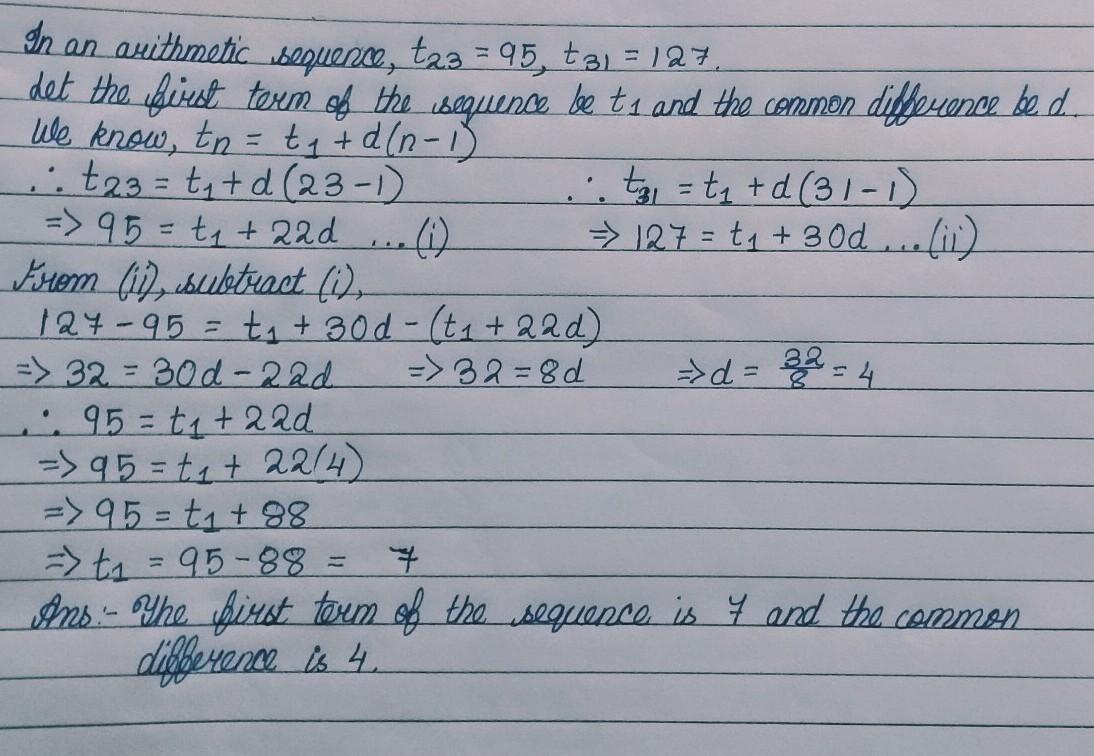 In an arithmetic sequence, t₂₃ = 95, t₃₁ = 127.
Let the first term of the sequence be t₁ and the common difference be d.
We know, tₙ = t₁ + d(n-1)
∴ t₂₃ = t₁ + d(23-1) ∴ t₃₁ = t₁ + d(31-1)
=> 95 = t₁ + 22d ...(i) => 127 = t₁ + 30d ...(ii)
From (ii), subtract (i),
127 - 95 = t₁ + 30d - (t₁ + 22d)
=> 32 = 30d - 22d => 32 = 8d => d = 32/8 = 4
∴ 95 = t₁ + 22d
=> 95 = t₁ + 22(4)
=> 95 = t₁ + 88
=> t₁ = 95 - 88 = 7
Ans:- The first term of the sequence is 7 and the common
difference is 4.